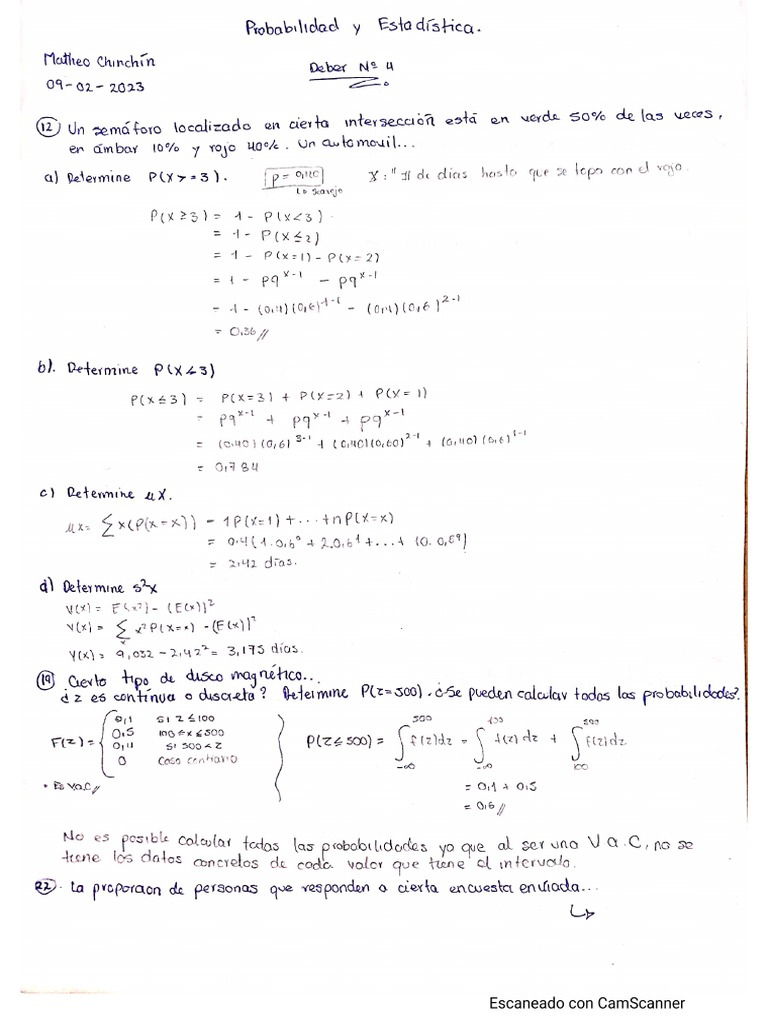 Probabilidad y Estadística.
Matheo Chinchín
Deber Nº 4
09-02-2023
⑫ Un semáforo localizado en cierta intersección está en verde 50% de las veces,
en ámbar 10% y rojo 40%. Un automovil...
a) Determine P(X>=3). p = 0,40 X: "# de días hasta que se topa con el rojo.
P(X≥3) = 1 - P(X<3).
= 1 - P(X≤2)
= 1 - P(X=1) - P(X=2)
= 1 - pq^x-1 - pq^x-1
= 1 - (0,4)(0,6)^1-1 - (0,4)(0,6)^2-1
= 0,36//
b). Determine P(X<3)
P(X≤3) = P(X=3) + P(X=2) + P(X=1)
= pq^x-1 + pq^x-1 + pq^x-1
= (0,40)(0,6)^3-1 + (0,40)(0,60)^2-1 + (0,40)(0,6)^1-1
= 0,784
c) Determine μX.
μx = ∑x(P(X=x)) = 1P(X=1) + ...+nP(X=x)
= 0.4(1.0,6^0 + 2.0,6^1 + ...+
= 2,42 días.
d) Determine s²x
V(x) = E(x²) - (E(x))²
V(x) = ∑ x²P(X=x) - (E(x))²
V(x) = 9,032 - 2,42² = 3,175 días.
⑲ Cierto tipo de disco magnético...
¿z es contínua o discreta? Determine P(z=500). ¿Se pueden calcular todas las probabilidades?.
F(z) = { 0,1 si z≤100
0,5 100≤x≤500
0,4 si 500<z
0 Caso contrario
• Es V.a.C//
P(Z≤500) = ∫_-∞^500 f(z)dz = ∫_-∞^100 f(z)dz + ∫_100^500 f(z)dz
= 0,1 + 0,5
= 0,6//
No es posible calcular todas las probabilidades ya que al ser una V a.C, no se
tiene los datos concretos de cada valor que tiene el intervalo.
㉒. La proporcion de personas que responden a cierta encuesta enviada...
Escaneado con CamScanner